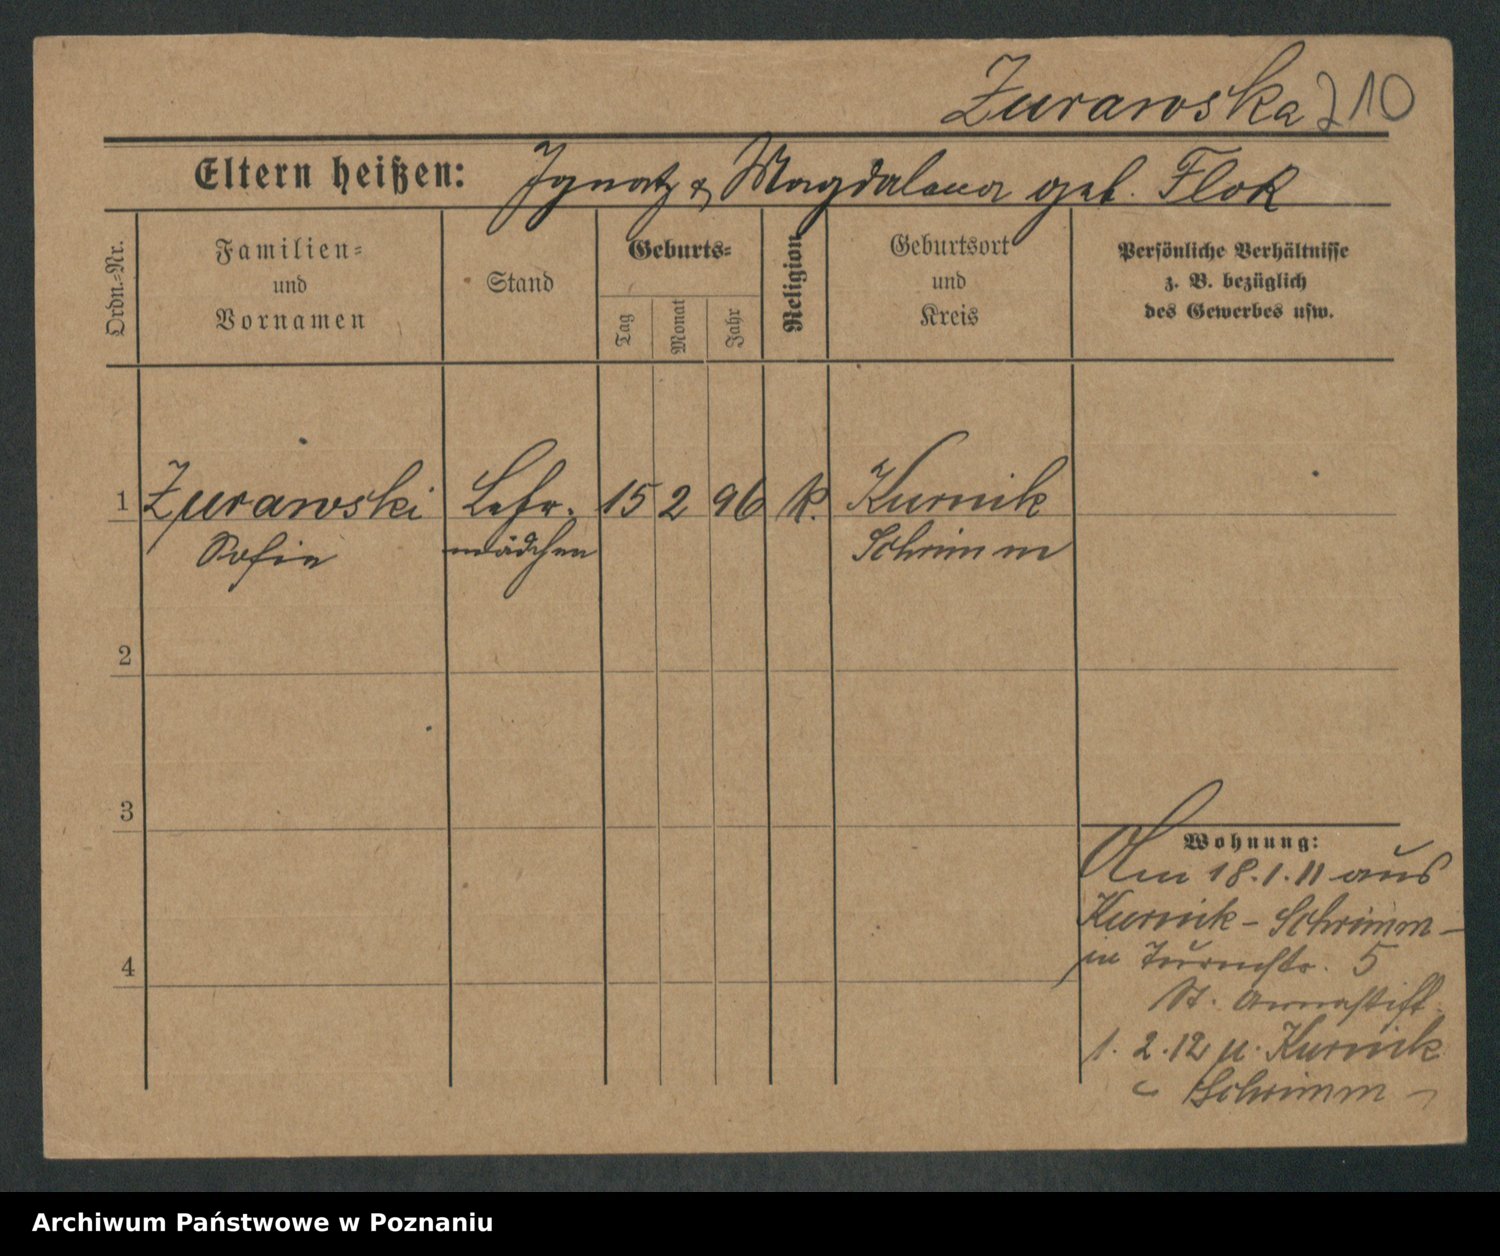 Zurawska 210
Eltern heißen: Ignatz & Magdalena geb. Flok
Ordn.=Nr.
Familien=
und
Vornamen
Stand
Geburts=
Tag
Monat
Jahr
Religion
Geburtsort
und
Kreis
Persönliche Verhältnisse
z. B. bezüglich
des Gewerbes usw.
1 Zurawski Lehr- 15 2 96 k. Kurnik
Sofie mädchen Schrimm
2
3
4
Wohnung:
Am 18.1.11 aus
Kurnik - Schrimm -
in Turmstr. 5
St. Annastift
1. 2. 12 n. Kurnik
- Schrimm -
Archiwum Państwowe w Poznaniu